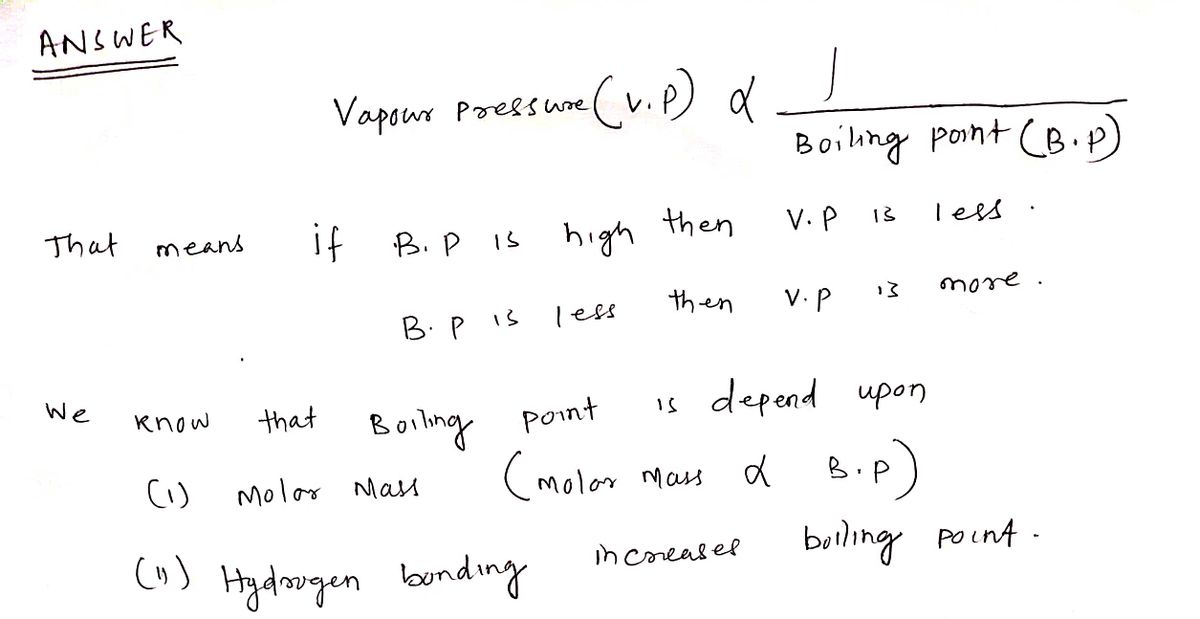 ANSWER
Vapour pressure (V.P) α 1
Boiling point (B.P)
That means if B.P is high then V.P is less.
B.P is less then V.P is more.
We know that Boiling point is depend upon
(i) Molar Mass (molar mass α B.P)
(ii) Hydrogen bonding increases boiling point.